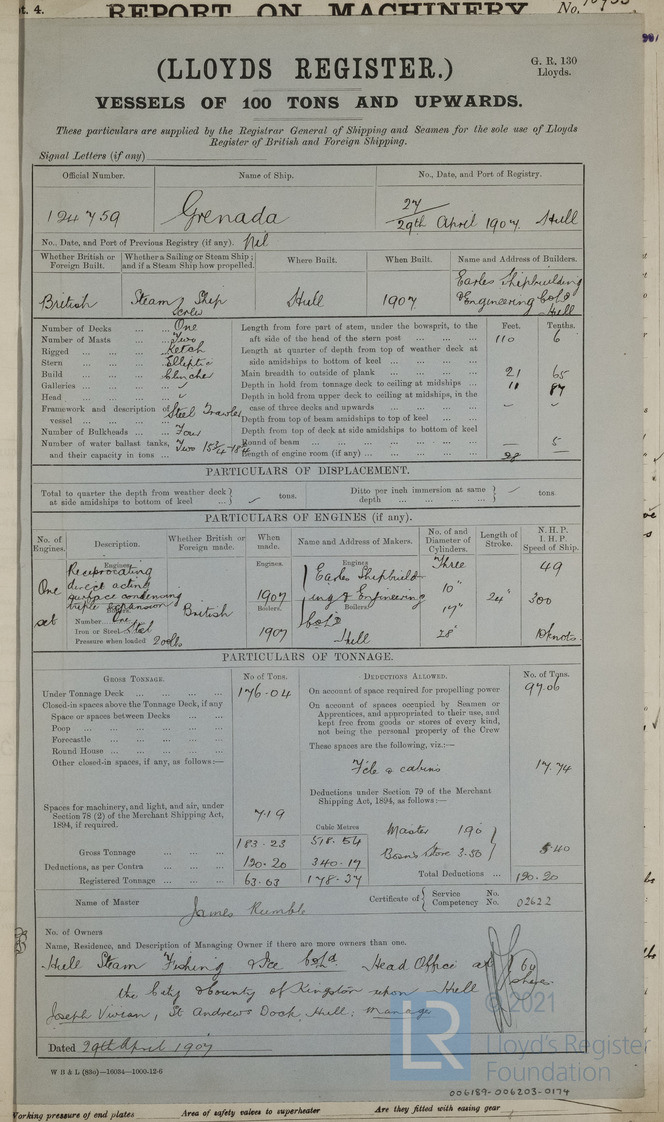 pt. 4. REPORT ON MACHINERY No.
(LLOYDS REGISTER.)
G. R. 130
Lloyds.
VESSELS OF 100 TONS AND UPWARDS.
These particulars are supplied by the Registrar General of Shipping and Seamen for the sole use of Lloyds
Register of British and Foreign Shipping.
Signal Letters (if any)
Official Number. Name of Ship. No., Date, and Port of Registry.
124759 Grenada 27/29th April 1907. Hull
No., Date, and Port of Previous Registry (if any). Nil
Whether British or Foreign Built. Whether a Sailing or Steam Ship; and if a Steam Ship how propelled. Where Built. When Built. Name and Address of Builders.
British Steam Ship Screw Hull 1907 Earles Shipbuilding & Engineering Co Ld Hull
Number of Decks ... One Length from fore part of stem, under the bowsprit, to the Feet. Tenths.
Number of Masts ... Two aft side of the head of the stern post ... 110 6
Rigged ... Ketch Length at quarter of depth from top of weather deck at
Stern ... Elliptic side amidships to bottom of keel ...
Build ... Clincher Main breadth to outside of plank ... 21 65
Galleries ... Depth in hold from tonnage deck to ceiling at midships ... 11 87
Head ... Depth in hold from upper deck to ceiling at midships, in the
Framework and description of vessel ... Steel Trawler case of three decks and upwards ...
Depth from top of beam amidships to top of keel ...
Number of Bulkheads ... Four Depth from top of deck at side amidships to bottom of keel
Number of water ballast tanks, Two Round of beam ... 5
and their capacity in tons ... Length of engine room (if any) ... 28
PARTICULARS OF DISPLACEMENT.
Total to quarter the depth from weather deck at side amidships to bottom of keel ... tons. Ditto per inch immersion at same depth ... tons.
PARTICULARS OF ENGINES (if any).
No. of Engines. Description. Whether British or Foreign made. When made. Name and Address of Makers. No. of and Diameter of Cylinders. Length of Stroke. N.H.P. I.H.P. Speed of Ship.
Engines. Engines. Engines.
One set Reciprocating direct acting surface condensing triple expansion British 1907 Earles Shipbuilding & Engineering Co Ld Hull Three 10" 17" 28" 24" 49 300 10 knots.
Boilers. Boilers. Boilers.
Number ... One
Iron or Steel Steel 1907
Pressure when loaded 200 lbs
PARTICULARS OF TONNAGE.
GROSS TONNAGE. No of Tons. DEDUCTIONS ALLOWED. No. of Tons.
Under Tonnage Deck ... 176.04 On account of space required for propelling power 97.06
Closed-in spaces above the Tonnage Deck, if any On account of spaces occupied by Seamen or
Space or spaces between Decks ... Apprentices, and appropriated to their use, and
Poop ... kept free from goods or stores of every kind,
Forecastle ... not being the personal property of the Crew
Round House ... These spaces are the following, viz.:—
Other closed-in spaces, if any, as follows:— F'cle & cabins 17.74
Deductions under Section 79 of the Merchant
Shipping Act, 1894, as follows:—
Spaces for machinery, and light, and air, under
Section 78 (2) of the Merchant Shipping Act,
1894, if required. 7.19
Cubic Metres Master 1.90
Gross Tonnage ... 183.23 518.54 Bosn's Store 3.50 5.40
Deductions, as per Contra ... 120.20 340.17
Registered Tonnage ... 63.03 178.37 Total Deductions ... 120.20
Name of Master James Rumble Certificate of Service No. Competency No. 02622
No. of Owners
Name, Residence, and Description of Managing Owner if there are more owners than one.
Hull Steam Fishing & Ice Co Ld Head Office at
the City & County of Kingston upon Hull shares
Joseph Vivian, St Andrews Dock, Hull. Manager
Dated 29th April 1907
W B & L (83o)—16034—1000-12-6
© 2021
LR Lloyd's Register
Foundation
006189-006203-0174
Working pressure of end plates Area of safety valves to superheater Are they fitted with easing gear